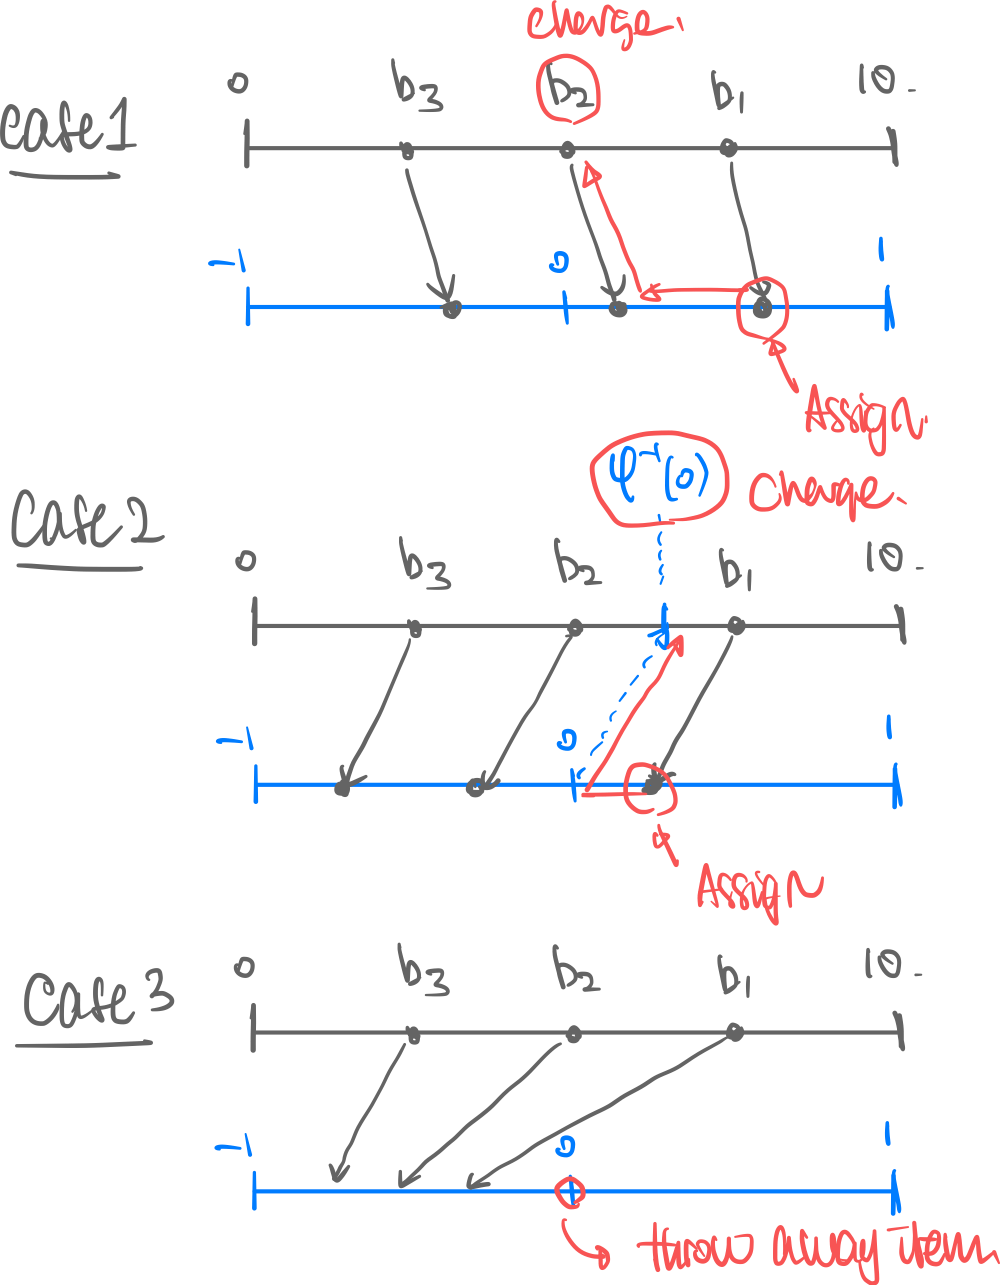 charge.
0 b3 b2 b1 10.
case 1
-1 0 1
Assign.
φ⁻¹(0) charge.
case 2
0 b3 b2 b1 10.
-1 0 1
Assign
case 3
0 b3 b2 b1 10.
-1 0 1
throw away item